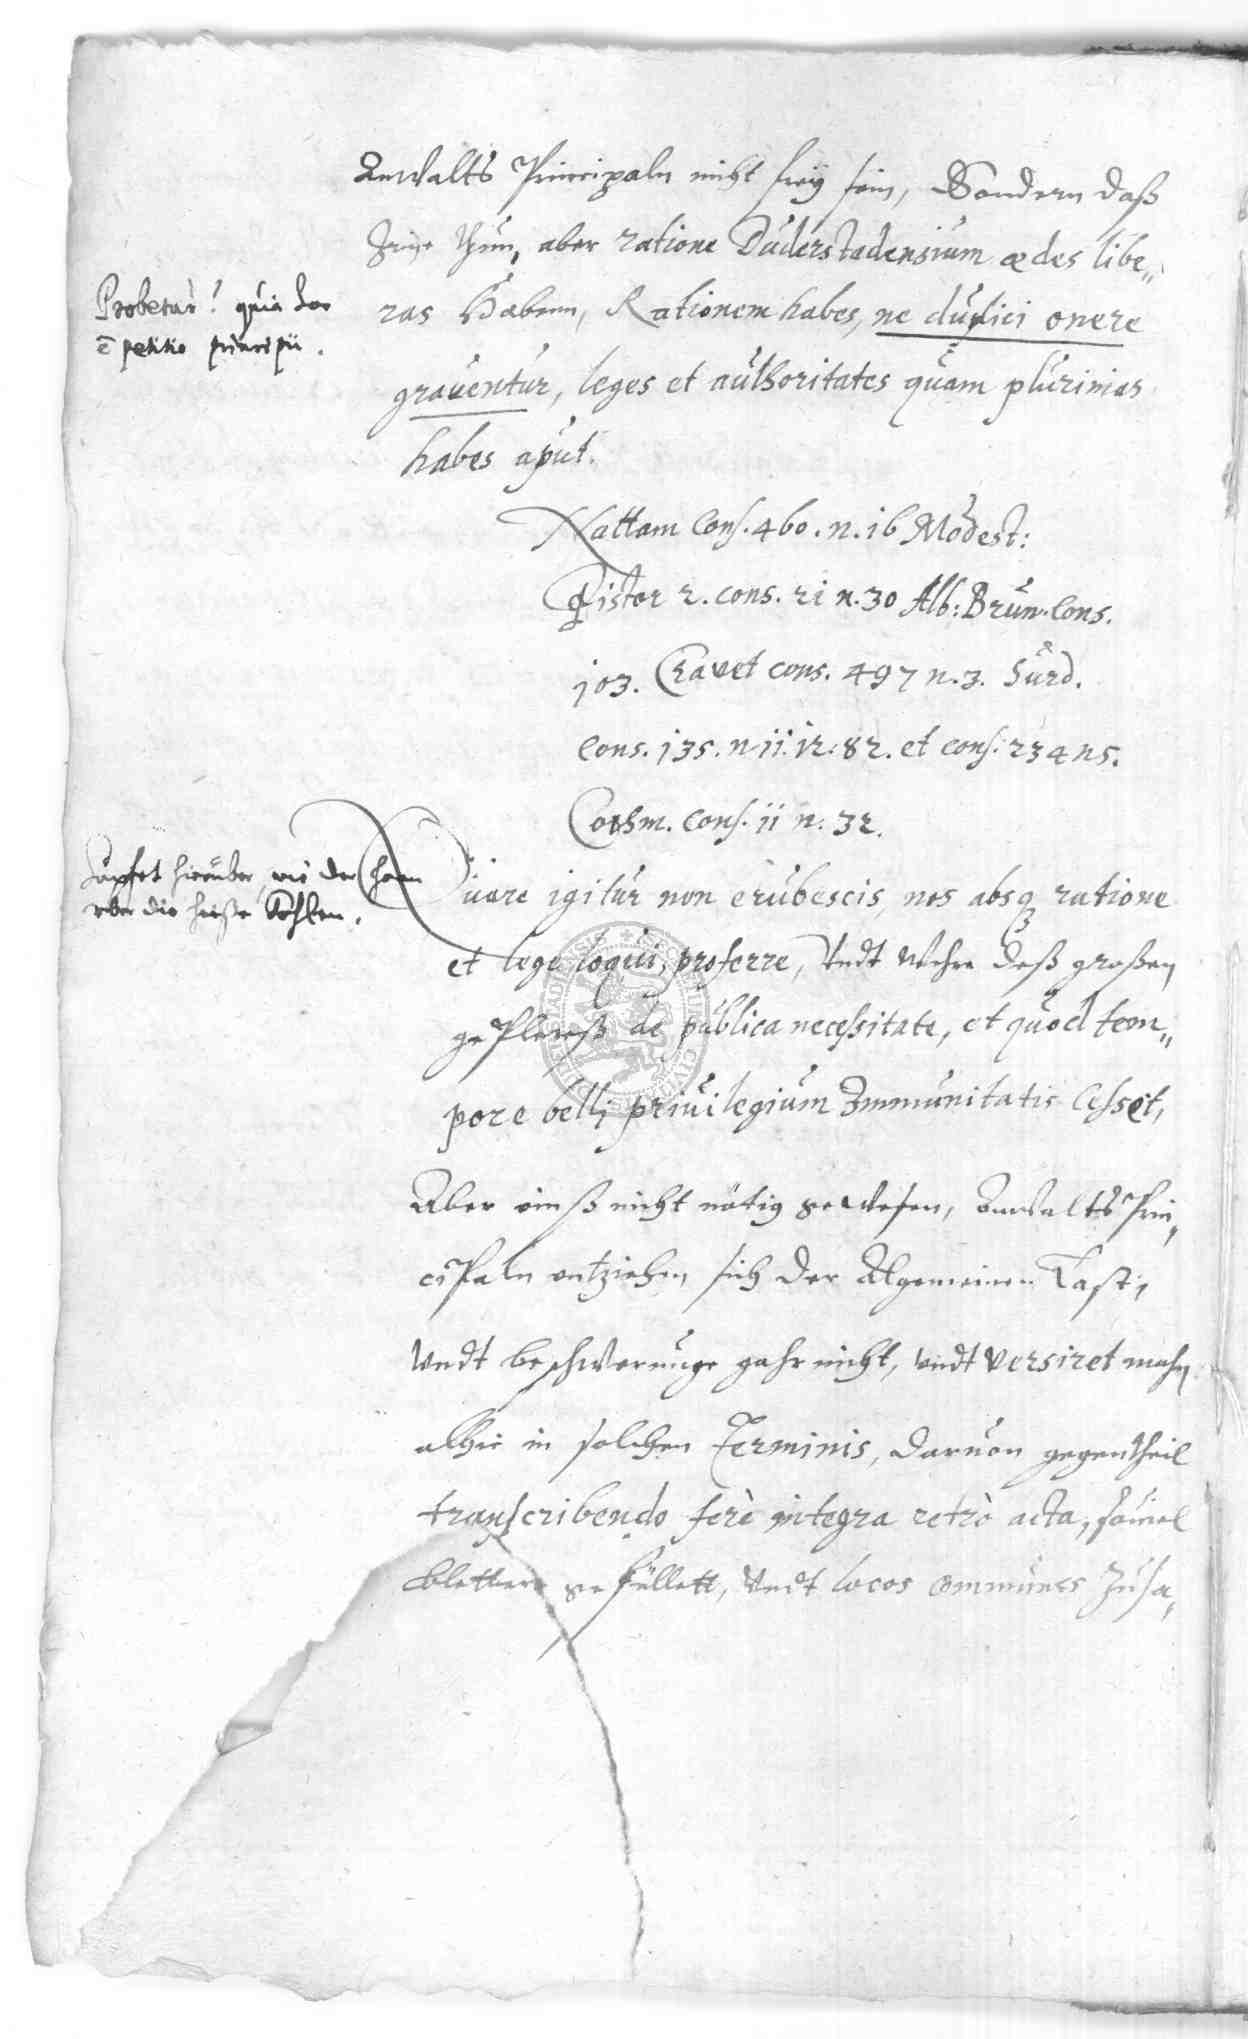 Anwalts Principaln nicht frey sein, Sondern daß
thun, aber ratione Duderstadensium ædes libe„
ras Haben, Rationem habes, ne duplici onere
grauentur, leges et authoritates quam plurimas
habes aput.
Probetur! quia hoc
ē petitio principii.
Nattam Cons. 460. n. 16 Modest:
Pistor 2. cons. 21 n. 30 Alb: Brun. Cons.
103. Cravet cons. 497 n. 3. Surd.
Cons. 135. n. 11. 12. 82. et cons. 234 n 5.
Cothm. Cons. 11 n. 32.
hierüber, wie der Haan
vber die heiße Kohlen.
Quare igitur non erubescis, nos absq ratione
et lege loqui, proferre, Vndt Wehre deß großen
gePlerß de publica necessitate, et quod tem„
pore belli priuilegium Immunitatis Cesset,
Aber einß nicht nötig gewesen, Anwalts Prin„
ciPaln entziehen sich der Algemeinen Last,
Vndt beschwerunge gahr nicht, vndt versiret mahn
alhie in solchen Terminis, daruon gegentheil
transcribendo ferè integra retrò acta, souiel
bletter gefüllett, Vndt locos communes Zusa„